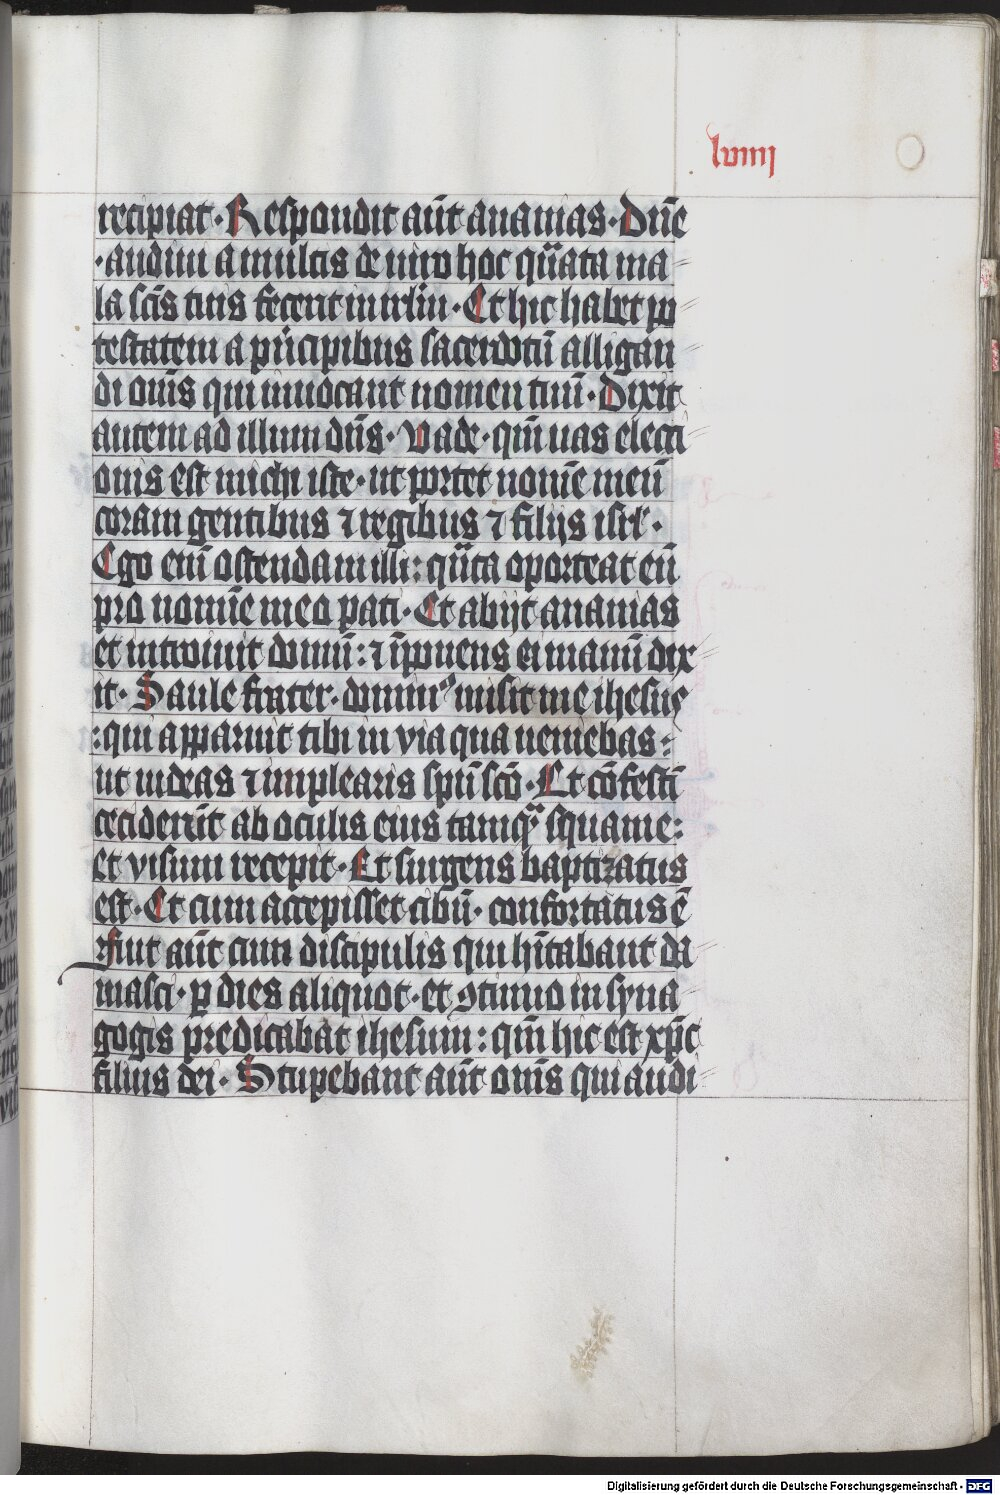 lviiij
recipiat · Respondit aūt ananias · Dn̄e
· audiui a multis de uiro hoc qūata ma
la scīs tuis fecerit in irlm̄ · Et hic habet po
testatem a pⁱncipibus sacerdotū alligan
di om̄s qui inuocant nomen tuū · Dixit
autem ad illum dn̄s · Vade · qm̄ uas electi
onis est michi iste · ut portet nom̄e meū
coram gentibus ⁊ regibus ⁊ filijs isrl ·
Ego eni̅ ostendam illi : qūta oporteat eū
pro nom̄e meo pati · Et abijt ananias
et introiuit domū : ⁊ īponens ei manū dix
it · Saule frater · dominꝰ misit me ihesus
: qui apparuit tibi in via qua ueniebas :
ut uideas ⁊ implearis spū scō · Et cōfestī
ceciderūt ab oculis eius tamqᵃ squame :
et visum recepit · Et surgens baptizatus
est · Et cum accepisset cibū · confortatus ē
Fuit aūt cum discipulis qui hītabant da
masci · ꝑ dies aliquot · et ꝯtinuo in syna
gogis predicabat ihesum : qm̄ hic est xp̄c
filius dei · Stupebant aūt om̄s qui audi
Digitalisierung gefördert durch die Deutsche Forschungsgemeinschaft - DFG